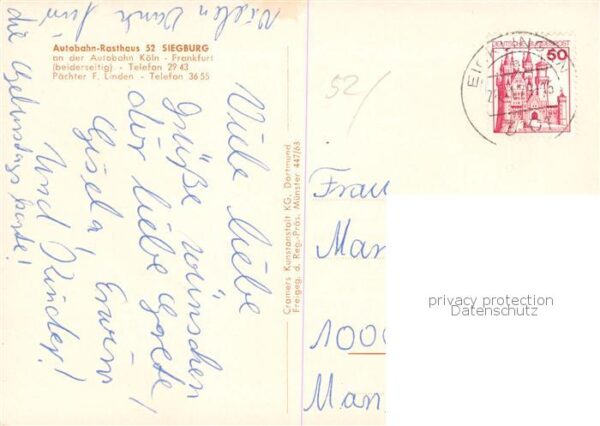 Autobahn-Rasthaus 52 SIEGBURG
an der Autobahn Köln - Frankfurt
(beiderseitig) - Telefon 29 43
Pächter F. Linden - Telefon 36 55
52/
Viele liebe
Grüße wünschen
dir liebe Grete!
Gisela, Erwin
Und Kinder!
Vielen Dank für
die Geburtstagskarte!
Cramers Kunstanstalt KG, Dortmund
Freigeg. d. Reg.-Präs. Münster 447/63
DEUTSCHE BUNDESPOST
50
Frau
Man
1000
Man
privacy protection
Datenschutz